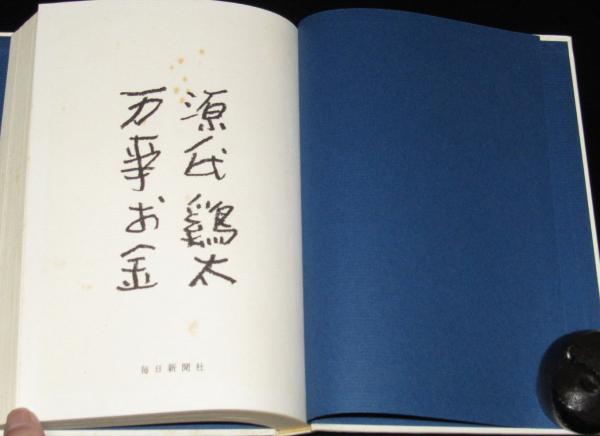 源氏鶏太
万事お金
毎日新聞社